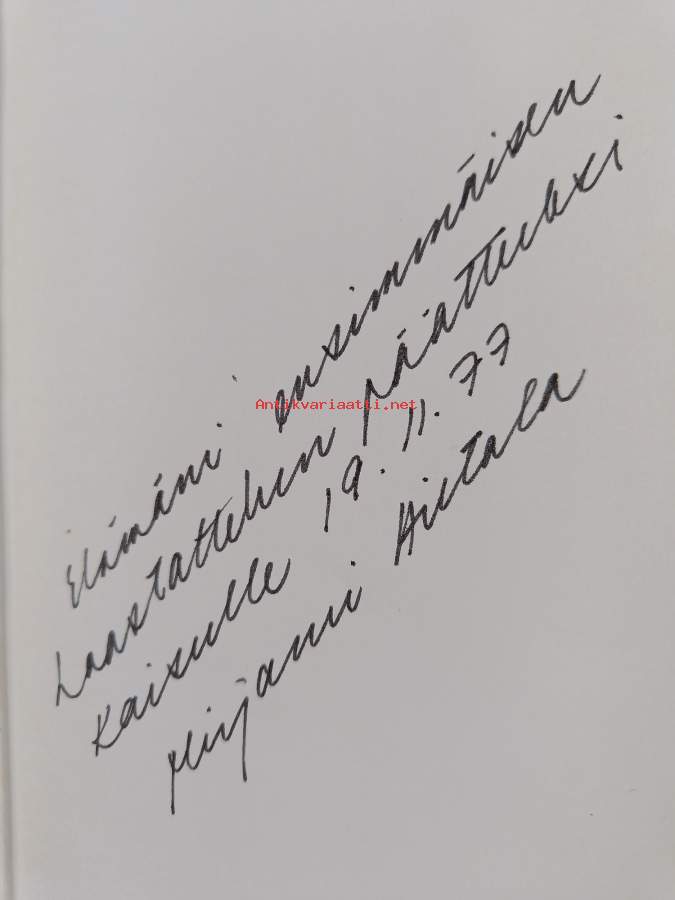 Elämäni ensimmäisen
haastattelun päätteeksi
Kaisulle 19.11.77
Mirjami Hietala
Antikvariaatti.net